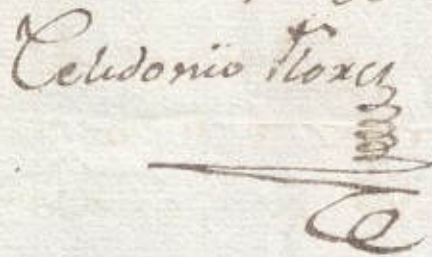 Celidonio Flores